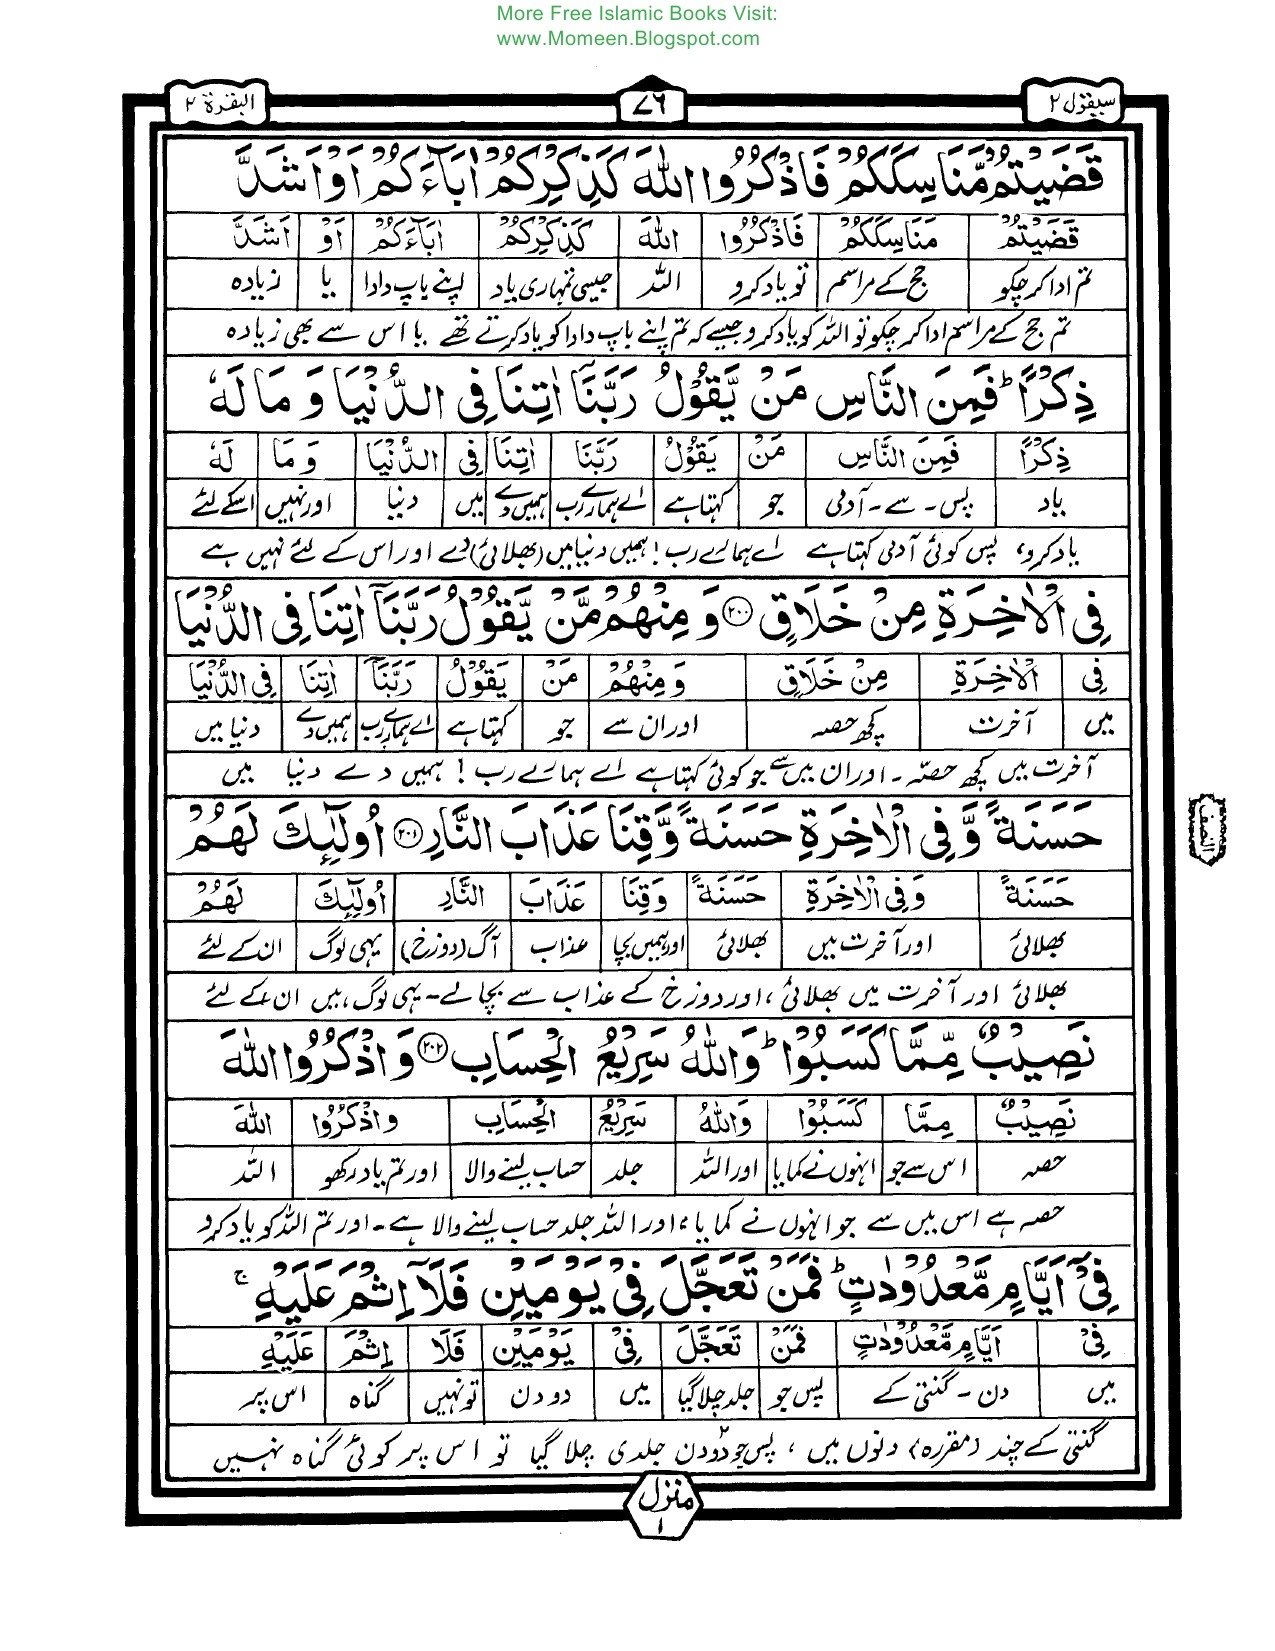 More Free Islamic Books Visit:
www.Momeen.Blogspot.com
سیقول ۲ ۷۶ البقرة ۲
قَضَيْتُمْ مَّنَاسِكَكُمْ فَاذْكُرُوا اللّٰهَ كَذِكْرِكُمْ اٰبَآءَكُمْ اَوْ اَشَدَّ
قَضَيْتُمْ مَنَاسِكَكُمْ فَاذْكُرُوا اللّٰهَ كَذِكْرِكُمْ اٰبَآءَكُمْ اَوْ اَشَدَّ
تم ادا کر چکو حج کے مراسم تو یاد کرو اللہ جیسی تمہاری یاد اپنے باپ دادا یا زیادہ
تم حج کے مراسم ادا کر چکو تو اللہ کو یاد کرو جیسے کہ تم اپنے باپ دادا کو یاد کرتے تھے یا اس سے بھی زیادہ
ذِكْرًا ؕ فَمِنَ النَّاسِ مَنْ يَّقُوْلُ رَبَّنَآ اٰتِنَا فِى الدُّنْيَا وَ مَا لَهٗ
ذِكْرًا فَمِنَ النَّاسِ مَنْ يَقُوْلُ رَبَّنَا اٰتِنَا فِى الدُّنْيَا وَ مَا لَهٗ
یاد پس۔ سے۔ آدمی جو کہتا ہے اے ہمارے رب ہمیں دے میں دنیا اور نہیں اسکے لئے
یاد کرو، پس کوئی آدمی کہتا ہے اے ہمارے رب! ہمیں دنیا میں (بھلائی) دے اور اس کے لئے نہیں ہے
فِى الْاٰخِرَةِ مِنْ خَلَاقٍ ۲۰۰ وَ مِنْهُمْ مَّنْ يَّقُوْلُ رَبَّنَآ اٰتِنَا فِى الدُّنْيَا
فِى الْاٰخِرَةِ مِنْ خَلَاقٍ وَ مِنْهُمْ مَنْ يَقُوْلُ رَبَّنَآ اٰتِنَا فِى الدُّنْيَا
میں آخرت کچھ حصہ اور ان سے جو کہتا ہے اے ہمارے رب ہمیں دے دنیا میں
آخرت میں کچھ حصّہ۔ اور ان میں سے جو کوئی کہتا ہے اے ہمارے رب! ہمیں دے دنیا میں
حَسَنَةً وَّ فِى الْاٰخِرَةِ حَسَنَةً وَّقِنَا عَذَابَ النَّارِ ۲۰۱ اُولٰٓئِكَ لَهُمْ
النصف
حَسَنَةً وَ فِى الْاٰخِرَةِ حَسَنَةً وَقِنَا عَذَابَ النَّارِ اُولٰٓئِكَ لَهُمْ
بھلائی اور آخرت میں بھلائی اور ہمیں بچا عذاب آگ (دوزخ) یہی لوگ ان کے لئے
بھلائی اور آخرت میں بھلائی، اور دوزخ کے عذاب سے بچا لے۔ یہی لوگ ہیں ان کے لئے
نَصِيْبٌ مِّمَّا كَسَبُوْا ؕ وَاللّٰهُ سَرِيْعُ الْحِسَابِ ۲۰۲ وَ اذْكُرُوا اللّٰهَ
نَصِيْبٌ مِمَّا كَسَبُوْا وَاللّٰهُ سَرِيْعُ الْحِسَابِ وَ اذْكُرُوْا اللّٰهَ
حصہ اس سے جو انہوں نے کمایا اور اللہ جلد حساب لینے والا اور تم یاد رکھو اللہ
حصہ ہے اس میں سے جو انہوں نے کمایا، اور اللہ جلد حساب لینے والا ہے۔ اور تم اللہ کو یاد کرو
فِىْٓ اَيَّامٍ مَّعْدُوْدٰتٍ ؕ فَمَنْ تَعَجَّلَ فِىْ يَوْمَيْنِ فَلَآ اِثْمَ عَلَيْهِ ۚ
فِىْ اَيَّامٍ مَّعْدُوْدٰتٍ فَمَنْ تَعَجَّلَ فِىْ يَوْمَيْنِ فَلَا اِثْمَ عَلَيْهِ
میں دن۔ گنتی کے پس جو جلد چلا گیا میں دو دن تو نہیں گناہ اس پر
گنتی کے چند (مقررہ) دنوں میں، پس جو دو دن جلدی چلا گیا تو اس پر کوئی گناہ نہیں
منزل ۱